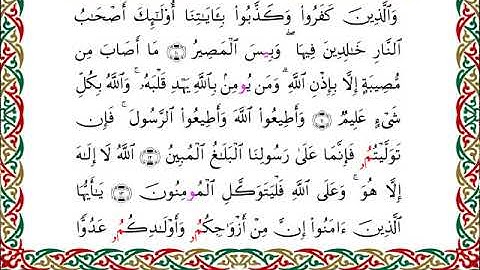 وَٱلَّذِينَ كَفَرُوا۟ وَكَذَّبُوا۟ بِـَٔايَٰتِنَآ أُو۟لَٰٓئِكَ أَصْحَٰبُ
ٱلنَّارِ خَٰلِدِينَ فِيهَا ۖ وَبِيسَ ٱلْمَصِيرُ ۝١٠ مَآ أَصَابَ مِن
مُّصِيبَةٍ إِلَّا بِإِذْنِ ٱللَّهِ ۗ وَمَن يُومِنۢ بِٱللَّهِ يَهْدِ قَلْبَهُۥ ۚ وَٱللَّهُ بِكُلِّ
شَىْءٍ عَلِيمٌ ۝١١ وَأَطِيعُوا۟ ٱللَّهَ وَأَطِيعُوا۟ ٱلرَّسُولَ ۚ فَإِن
تَوَلَّيْتُمُۥ فَإِنَّمَا عَلَىٰ رَسُولِنَا ٱلْبَلَٰغُ ٱلْمُبِينُ ۝١٢ ٱللَّهُ لَآ إِلَٰهَ
إِلَّا هُوَ ۚ وَعَلَى ٱللَّهِ فَلْيَتَوَكَّلِ ٱلْمُومِنُونَ ۝١٣ يَٰٓأَيُّهَا
ٱلَّذِينَ ءَامَنُوٓا۟ إِنَّ مِنْ أَزْوَٰجِكُمُۥ وَأَوْلَٰدِكُمُۥ عَدُوًّا